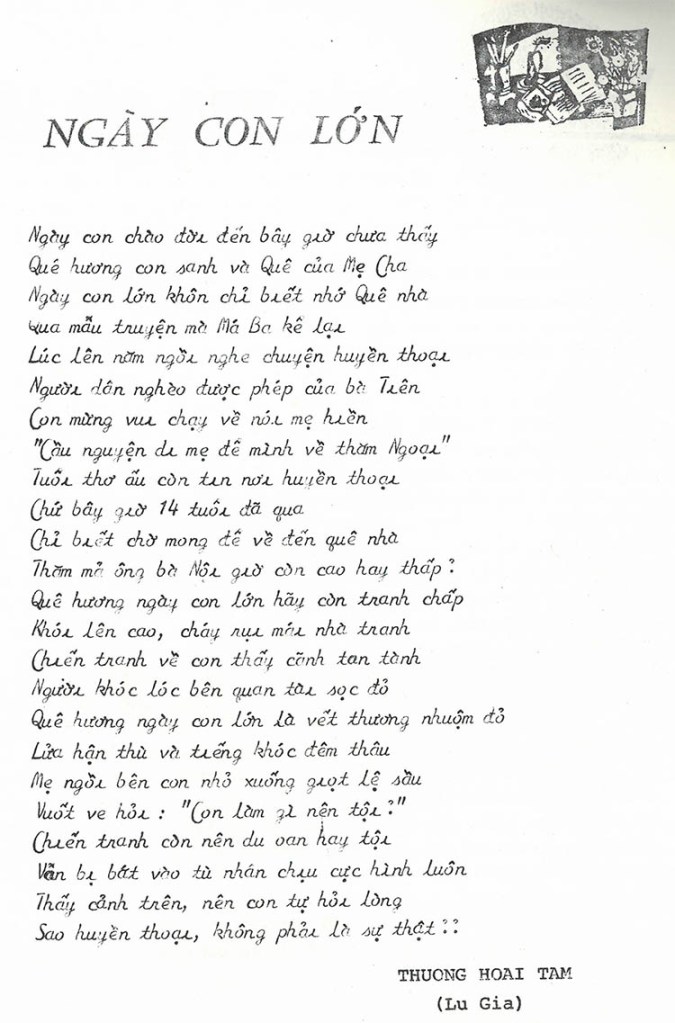 NGÀY CON LỚN
Ngày con chào đời đến bây giờ chưa thấy
Quê hương con sanh và Quê của Mẹ Cha
Ngày con lớn khôn chỉ biết nhớ Quê nhà
Qua mẫu truyện mà Má Ba kể lại
Lúc lên năm ngồi nghe chuyện huyền thoại
Người dân nghèo được phép của bà Tiên
Con mừng vui chạy về nói mẹ hiền
"Cầu nguyện đi mẹ để mình về thăm Ngoại"
Tuổi thơ ấu còn tin nơi huyền thoại
Chứ bây giờ 14 tuổi đã qua
Chỉ biết chờ mong để về đến quê nhà
Thăm mả ông bà Nội giờ còn cao hay thấp?
Quê hương ngày con lớn hãy còn tranh chấp
Khói lên cao, cháy rụi mái nhà tranh
Chiến tranh về con thấy cảnh tan tành
Người khóc lóc bên quan tài sọc đỏ
Quê hương ngày con lớn là vết thương nhuộm đỏ
Lửa hận thù và tiếng khóc đêm thâu
Mẹ ngồi bên con nhỏ xuống giọt lệ sầu
Vuốt ve hỏi : "Con làm gì nên tội?"
Chiến tranh còn nên dù oan hay tội
Vẫn bị bắt vào tù nhân chịu cực hình luôn
Thấy cảnh trên, nên con tự hỏi lòng
Sao huyền thoại, không phải là sự thật??
THUONG HOAI TAM
(Lu Gia)